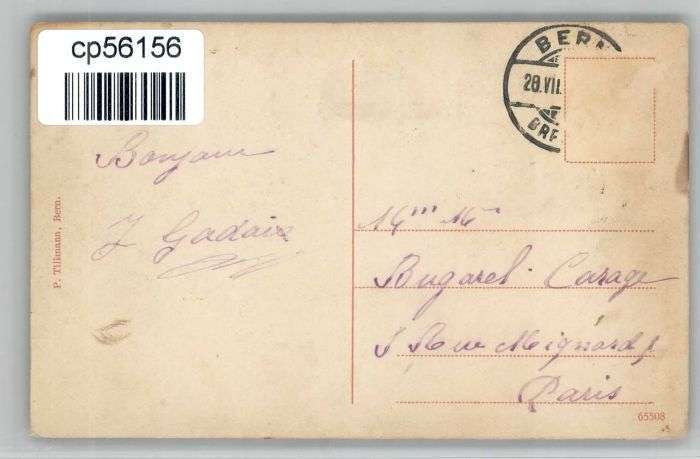 cp56156
BERN
28.VII.
BRF
Bonjour
P. Tillmann, Bern.
Bugarel. Carage
5 Rue Mignard
Paris
65508